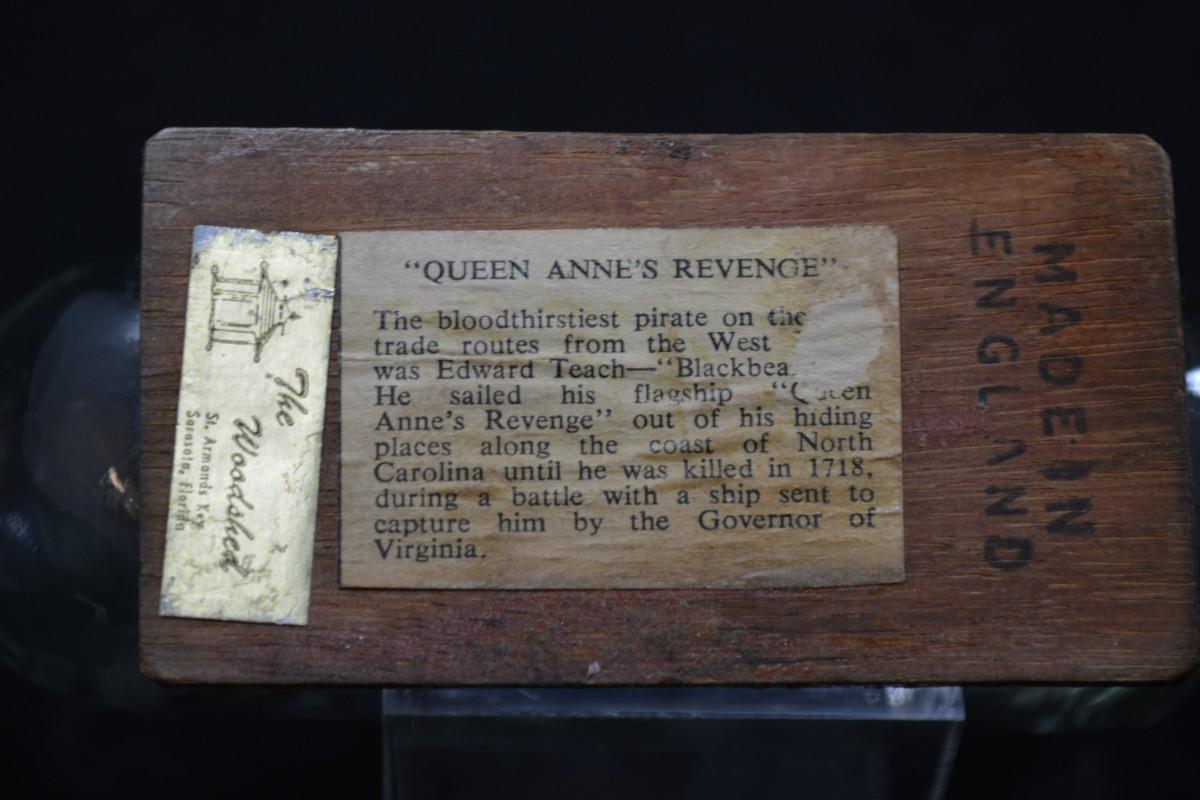 "QUEEN ANNE'S REVENGE"
The bloodthirstiest pirate on the
trade routes from the West
was Edward Teach—"Blackbea
He sailed his flagship "Queen
Anne's Revenge" out of his hiding
places along the coast of North
Carolina until he was killed in 1718,
during a battle with a ship sent to
capture him by the Governor of
Virginia.
The
Woodshed
St. Armands Key
Sarasota, Florida
MADE IN
ENGLAND